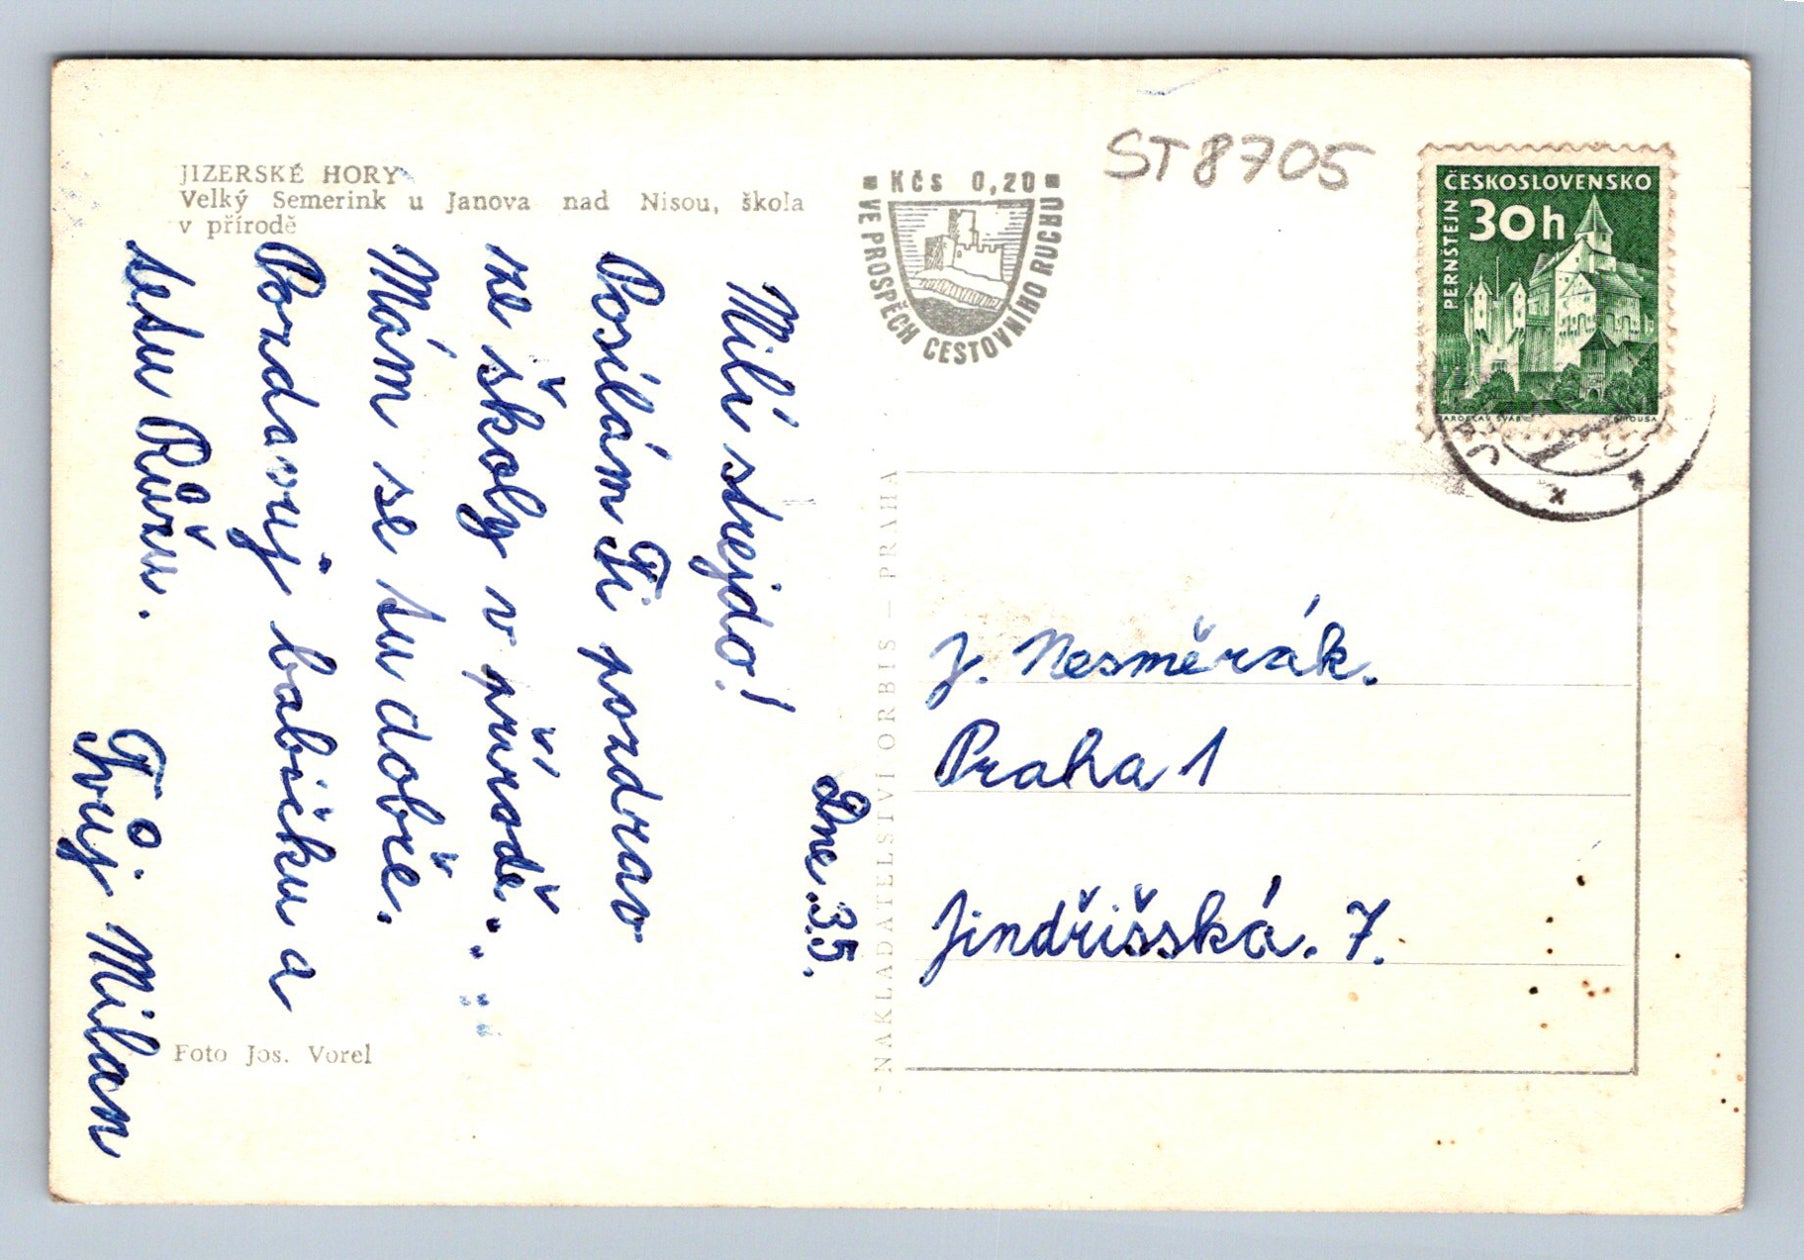 JIZERSKÉ HORY
Velký Semerink u Janova nad Nisou, škola
v přírodě
Kčs 0,20
VE PROSPĚCH CESTOVNÍHO RUCHU
ST8705
ČESKOSLOVENSKO
30h
PERNŠTEJN
Dne 3.5.
Milí strejdo!
Posílám Ti pozdrav
ze školy v přírodě.
Mám se tu dobře.
Pozdavuj babičku a
tetu Růžu.
Tvůj Milan
NAKLADATELSTVÍ ORBIS — PRAHA
J. Nesměrák.
Praha 1
Jindřišská. 7.
Foto Jos. Vorel